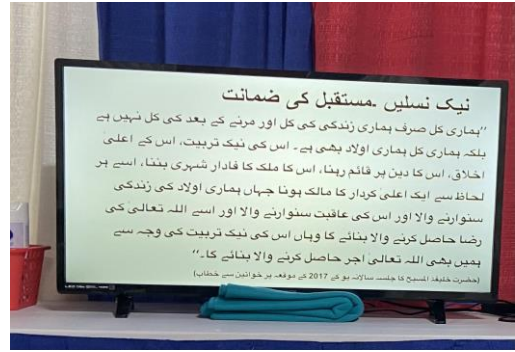 نیک نسلیں ۔مستقبل کی ضمانت
’’ہماری کل صرف ہماری زندگی کی کل اور مرنے کے بعد کی کل نہیں ہے
بلکہ ہماری کل ہماری اولاد بھی ہے۔ اس کی نیک تربیت، اس کے اعلیٰ
اخلاق، اس کا دین پر قائم رہنا، اس کا ملک کا فادار شہری بننا، اسے ہر
لحاظ سے ایک اعلیٰ کردار کا مالک ہونا جہاں ہماری اولاد کی زندگی
سنوارنے والا اور اس کی عاقبت سنوارنے والا اور اسے اللہ تعالیٰ کی
رضا حاصل کرنے والا بنائے گا وہاں اس کی نیک تربیت کی وجہ سے
ہمیں بھی اللہ تعالیٰ اجر حاصل کرنے والا بنائے گا۔‘‘
(حضرت خلیفۃ المسیح کا جلسہ سالانہ یو کے 2017 کے موقعہ پر خواتین سے خطاب)